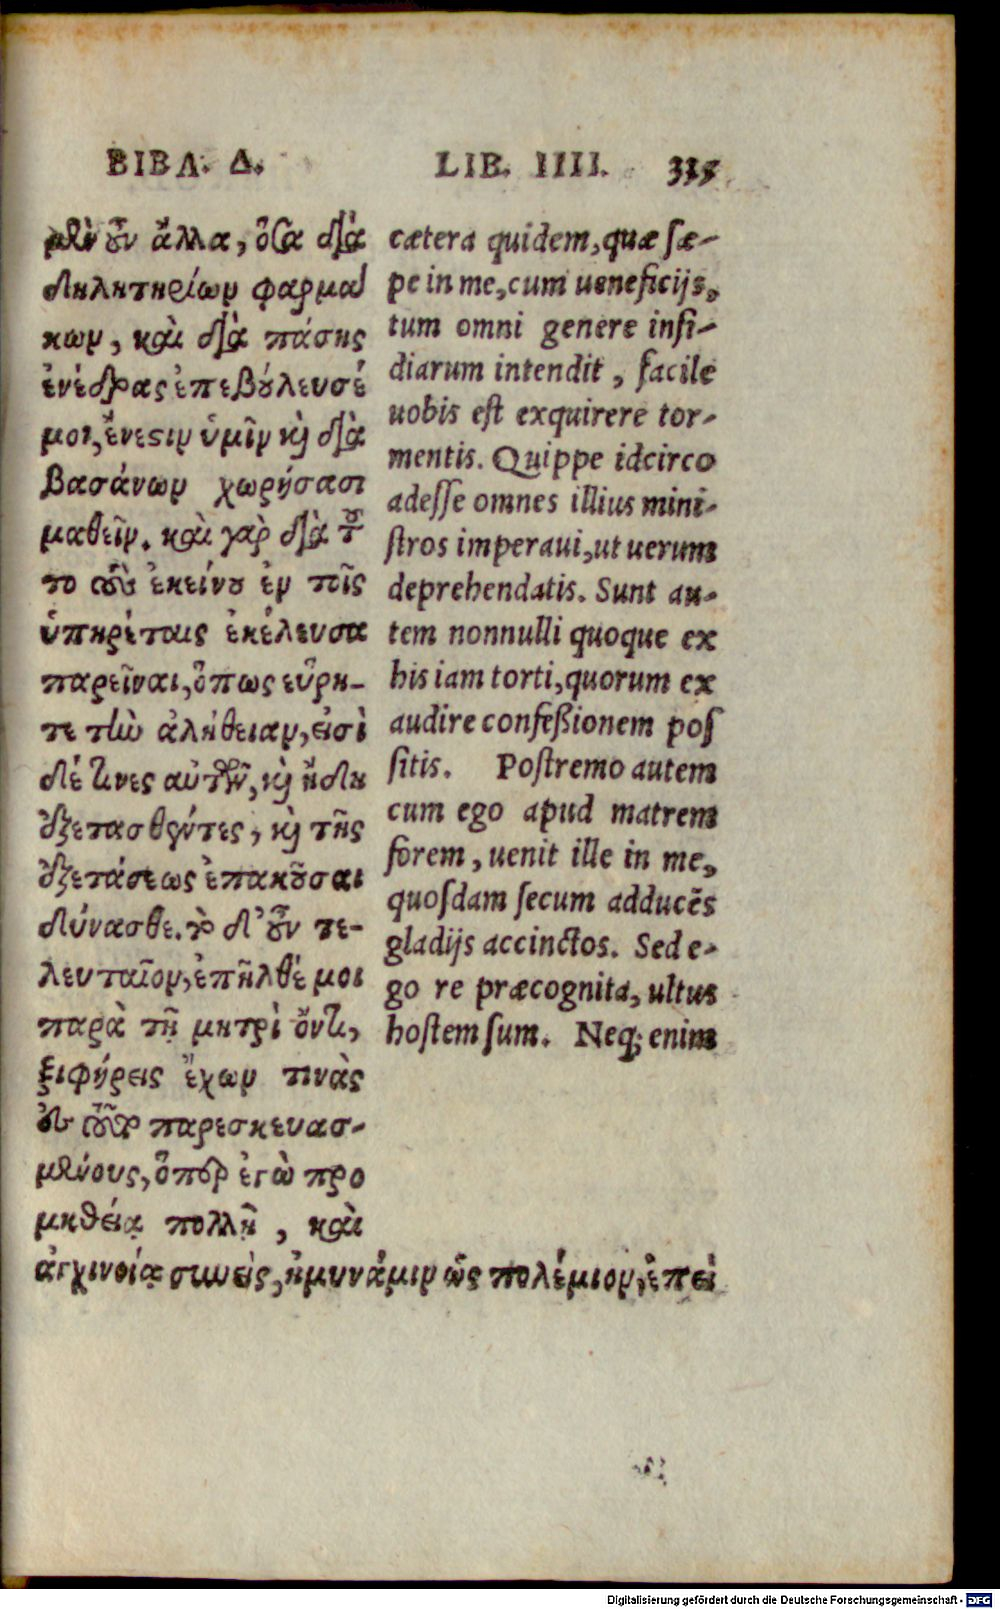 ΒΙΒΛ. Δ.
μὲν οὖν ἄλλα, ὅσα διὰ
δηλητηρίων φαρμα
κων, καὶ διὰ πάσης
ἐνέδρας ἐπεβούλευσέ
μοι, ἔνεστιν ὑμῖν καὶ διὰ
βασάνων χωρήσασι
μαθεῖν. καὶ γὰρ διὰ τοῦ
το τοὺς ἐκείνου ἐν τοῖς
ὑπηρέταις ἐκέλευσα
παρεῖναι, ὅπως εὕρη-
τε τὴν ἀλήθειαν, εἰσὶ
δέ τινες αὐτῶν, καὶ ἤδη
ἐξετασθέντες, καὶ τῆς
ἐξετάσεως ἐπακοῦσαι
δύνασθε. τὸ δ' οὖν τε-
λευταῖον, ἐπῆλθέ μοι
παρὰ τῇ μητρὶ ὄντι,
ξιφήρεις ἔχων τινὰς
ἐν τούτῳ παρεσκευασ-
μένους, ὅπερ ἐγὼ προ
μηθείᾳ πολλῇ, καὶ
ἀγχινοίᾳ συνεὶς, ἠμυνάμιν ὡς πολέμιον, ἐπεὶ
LIB. IIII. 325
cætera quidem, quæ sæ-
pe in me, cum ueneficijs,
tum omni genere insi-
diarum intendit, facile
uobis est exquirere tor-
mentis. Quippe idcirco
adesse omnes illius mini-
stros imperaui, ut uerum
deprehendatis. Sunt au-
tem nonnulli quoque ex
his iam torti, quorum ex
audire confeßionem pos
sitis. Postremo autem
cum ego apud matrem
forem, uenit ille in me,
quosdam secum adducẽs
gladijs accinctos. Sed e-
go re præcognita, ultus
hostem sum. Neq; enim
Digitalisierung gefördert durch die Deutsche Forschungsgemeinschaft - DFG